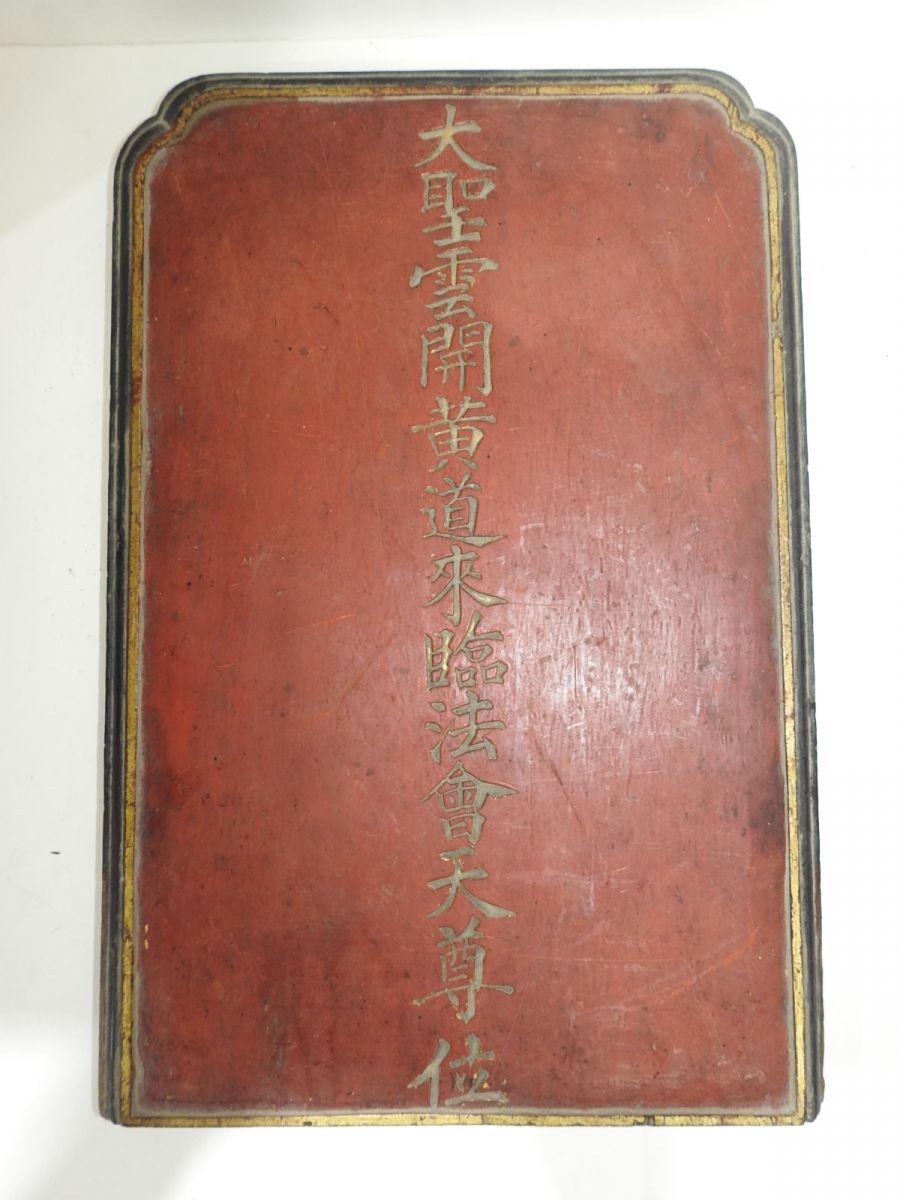 大聖雲開黄道來臨法會天尊位